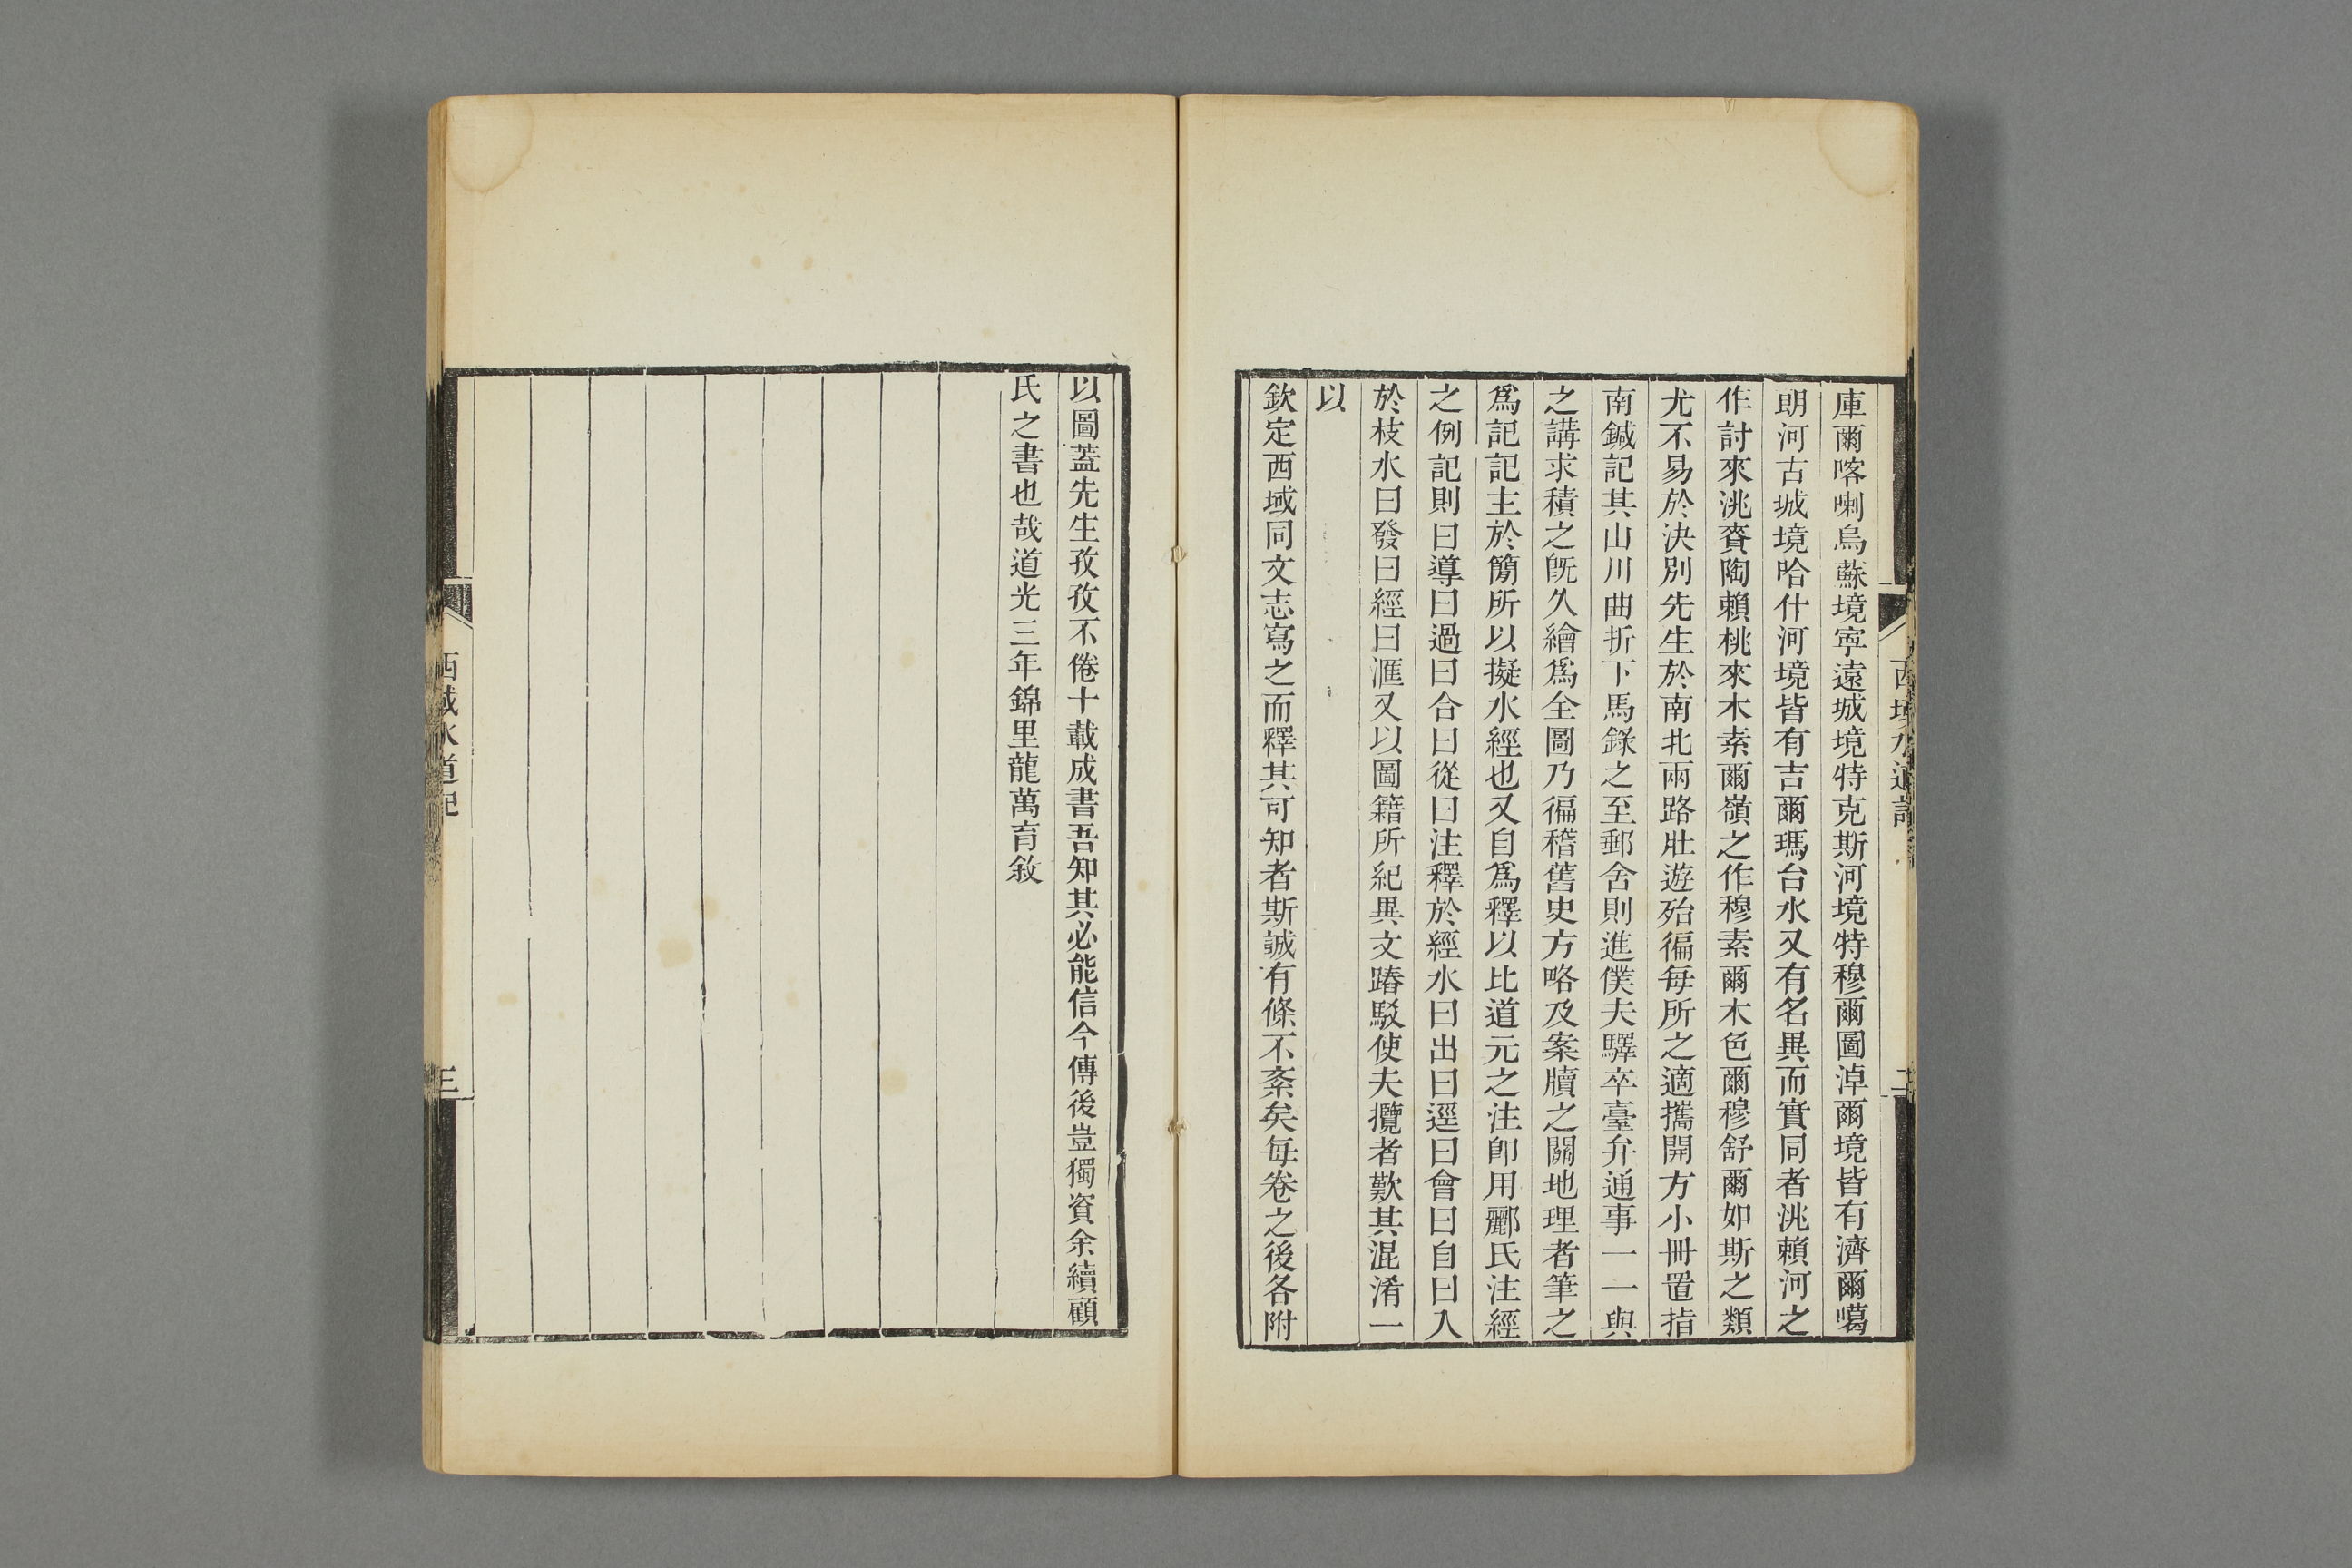 庫爾喀喇烏蘇境寧遠城境特克斯河境特穆爾圖淖爾境皆有濟爾噶
朗河古城境哈什河境皆有吉爾瑪台水又有名異而實同者洮賴河之
作討來洮賚陶賴桃來木素爾嶺之作穆素爾木色爾穆舒爾如斯之類
尤不易於決別先生於南北兩路壯遊殆徧每所之適攜開方小冊置指
南鍼記其山川曲折下馬錄之至郵舍則進僕夫驛卒臺弁通事一一與
之講求積之旣久繪爲全圖乃徧稽舊史方略及案牘之關地理者筆之
爲記記主於簡所以擬水經也又自爲釋以比道元之注卽用酈氏注經
之例記則曰導曰過曰合曰從曰注釋於經水曰出曰逕曰會曰自曰入
於枝水曰發曰經曰滙又以圖籍所紀異文踳駁使夫攬者歎其混淆一
以
欽定西域同文志寫之而釋其可知者斯誠有條不紊矣每卷之後各附
西域水道記
二
以圖蓋先生孜孜不倦十載成書吾知其必能信今傳後豈獨資余續顧
氏之書也哉道光三年錦里龍萬育敘
西域水道記
三